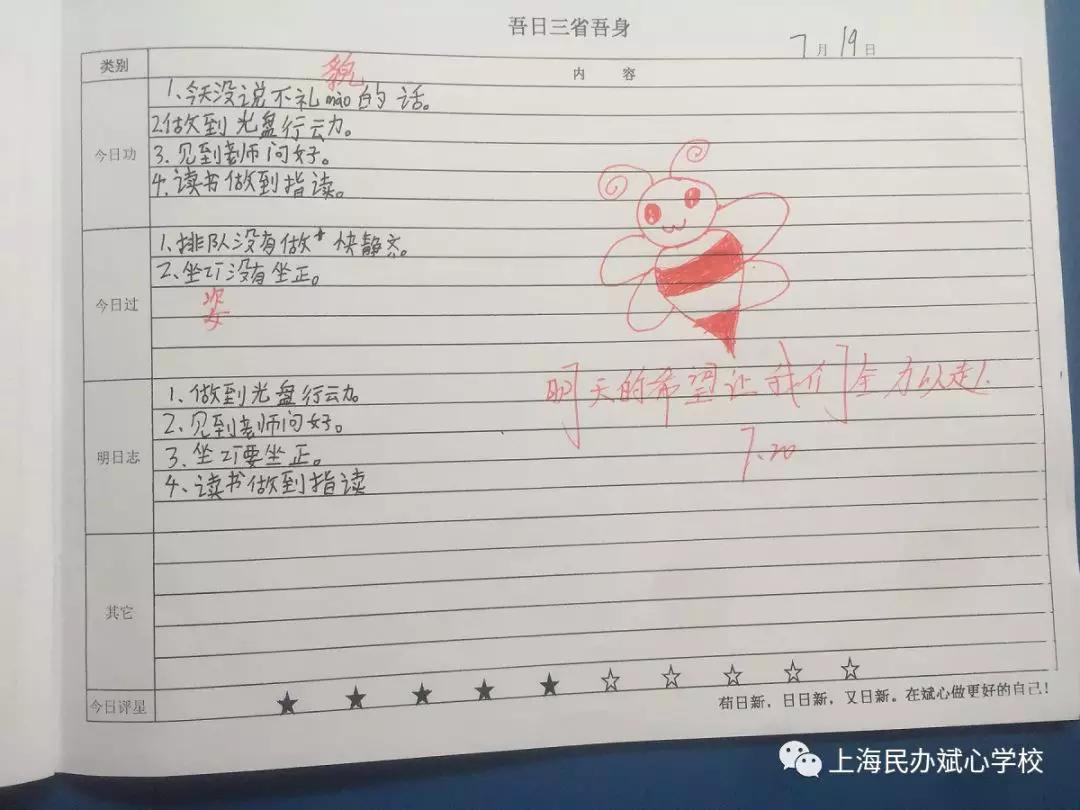 吾日三省吾身
7月19日
类别
内 容
今日功
貌
1、今天没说不礼mào的话。
2.做到光盘行动。
3.见到老师问好。
4.读书做到指读。
今日过
1、排队没有做快静齐。
2、坐没有坐正。
姿
明日志
1.做到光盘行动
2.见到老师问好。
3.坐要坐正。
4、读书做到指读
明天的希望让我们全力以赴!
7.20
其它
今日评星
★★★★★☆☆☆☆☆
苟日新,日日新,又日新。在斌心做更好的自己!
上海民办斌心学校